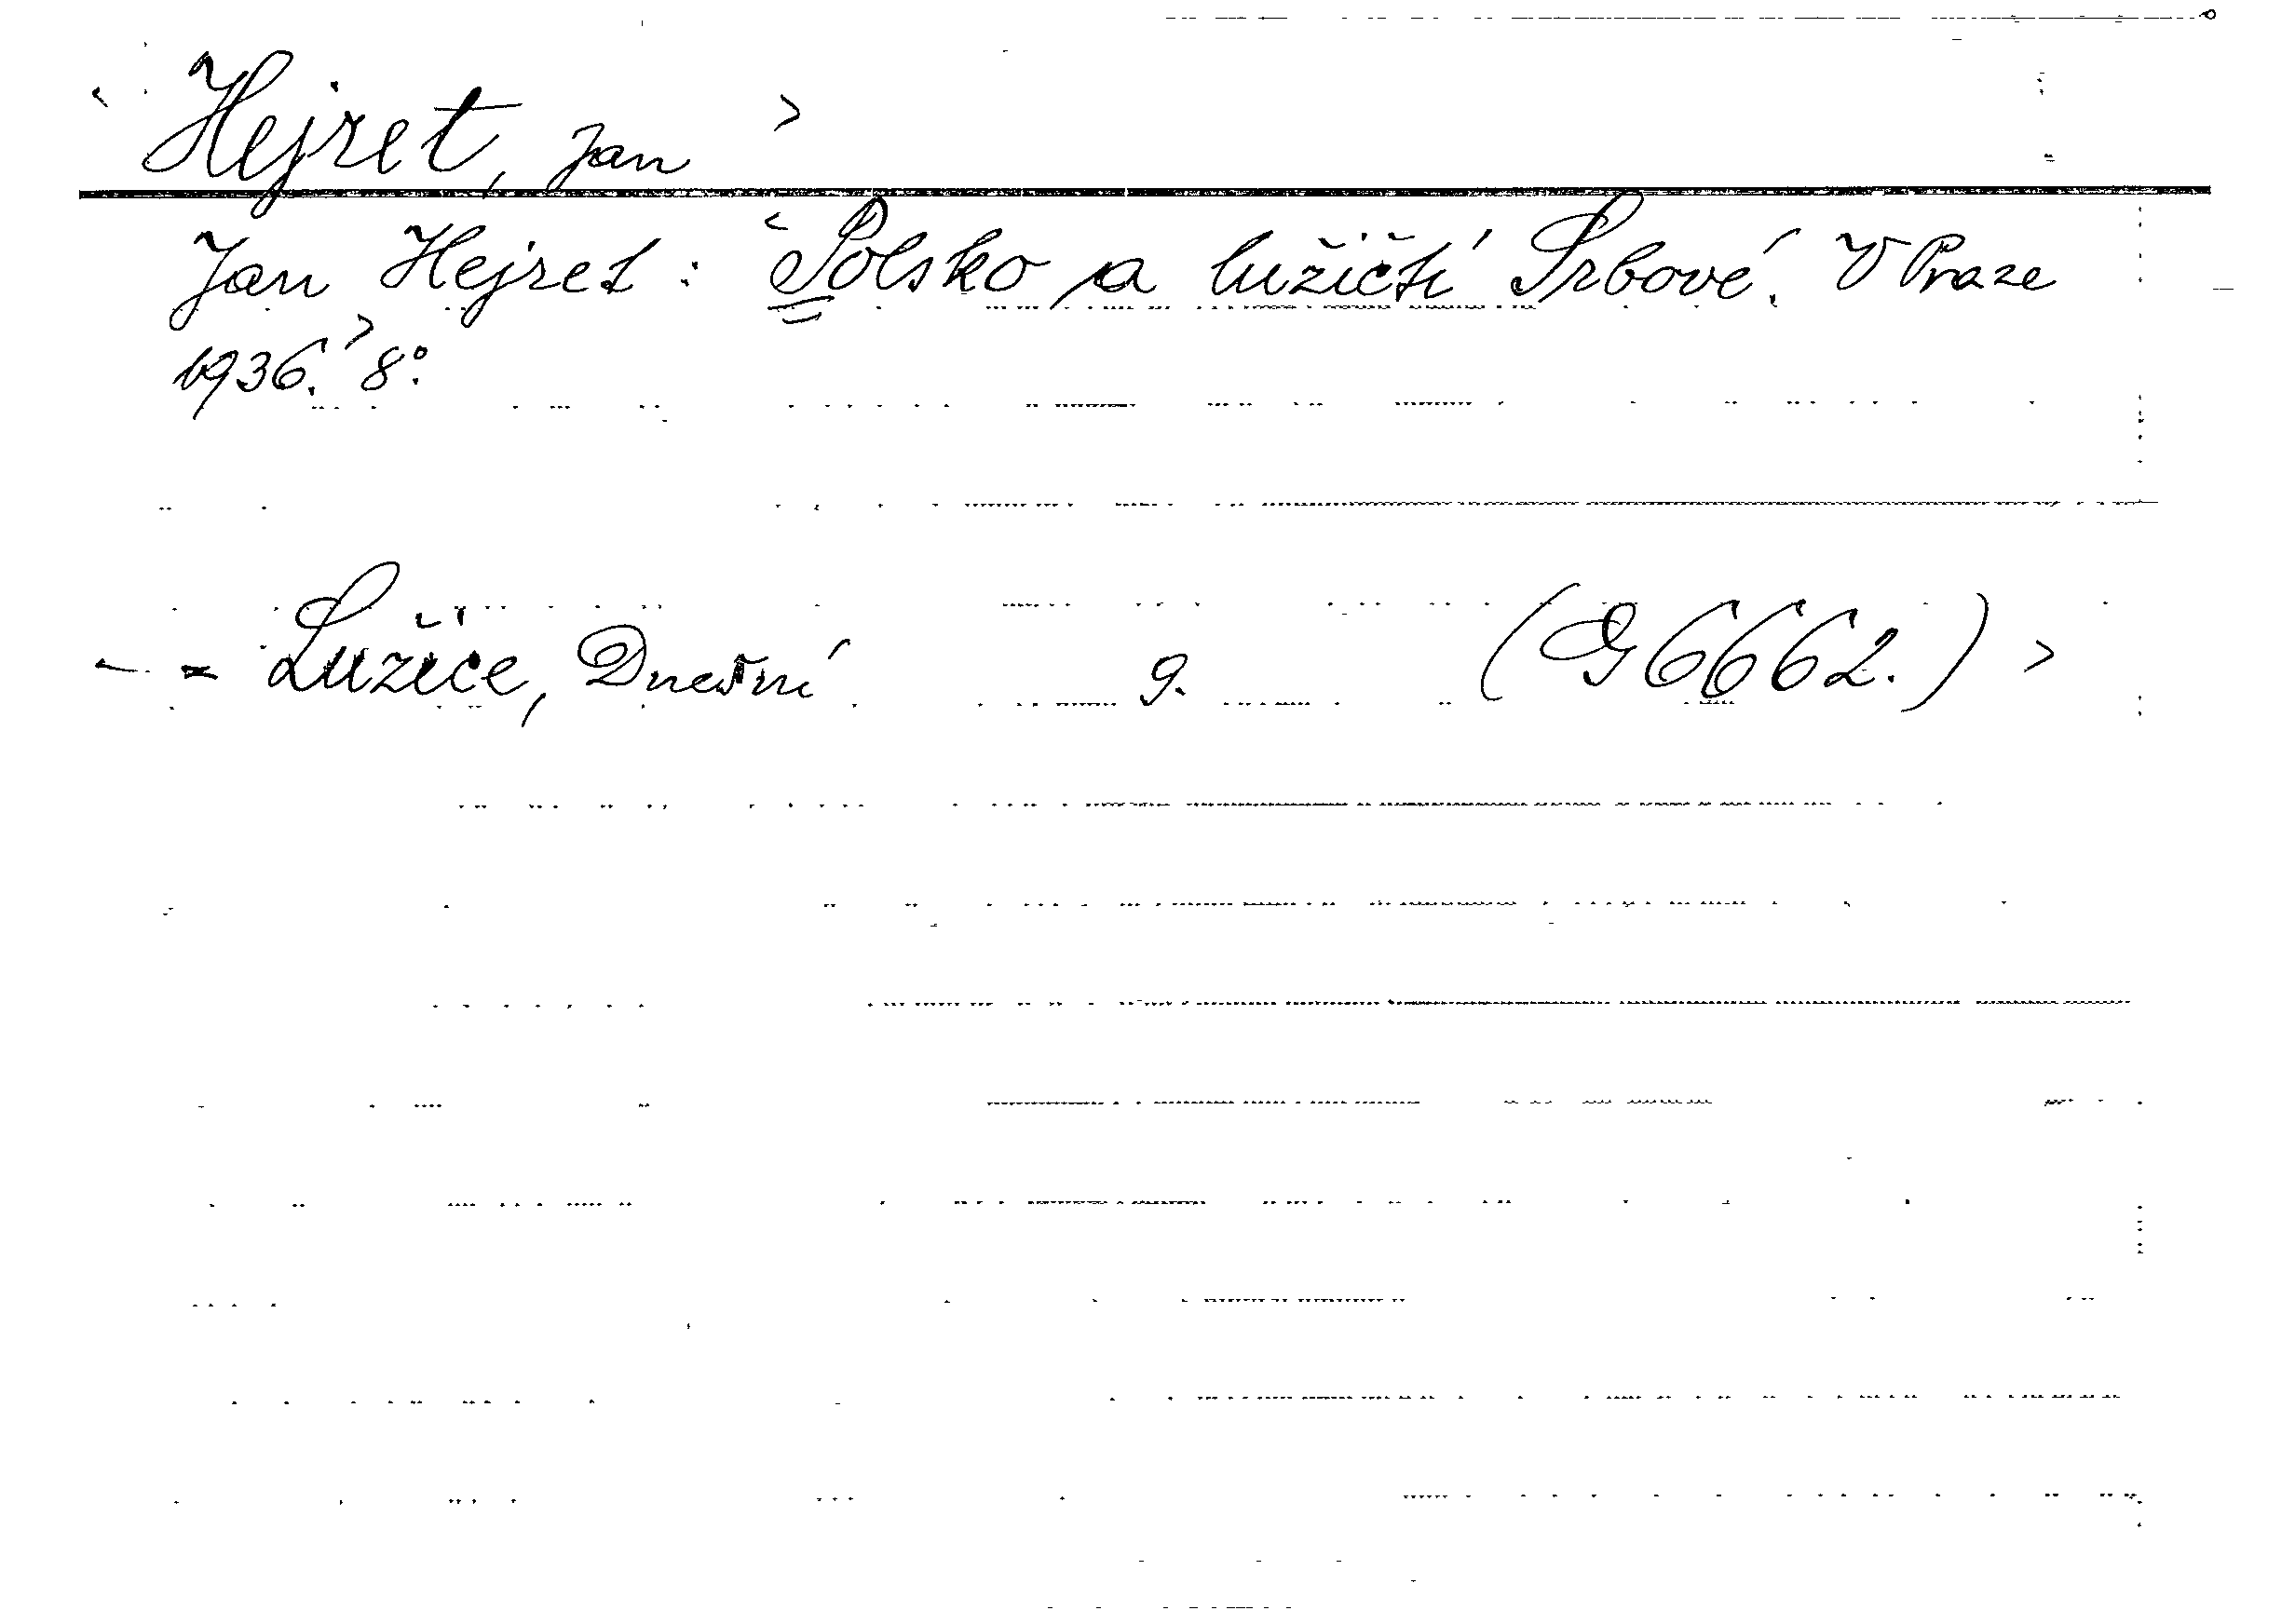 < Hejret, Jan >
Jan Hejret: <Polsko a lužičtí Srbové. V Praze
1936.> 8°.
<- = Lužice, Dnešní 9. (G 6662.) >